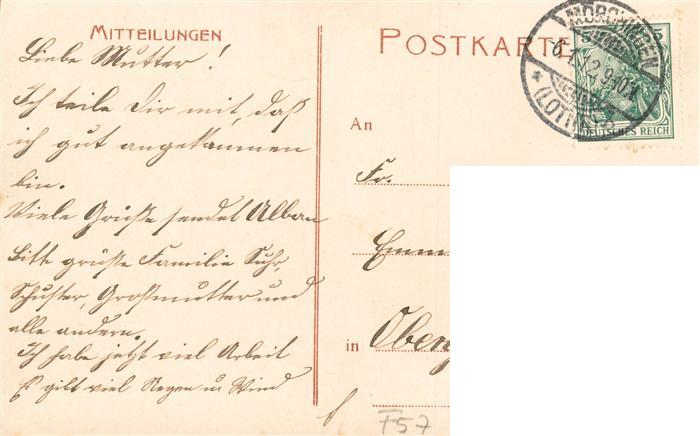 MITTEILUNGEN
Liebe Mutter!
Ich teile Dir mit, daß
ich gut angekommen
bin.
Viele Grüße sendet Alban
Bitte grüße Familie Suhr,
Schuster, Großmutter und
alle andern.
Ich habe jetzt viel Arbeit
Es gibt viel Regen u Wind
POSTKARTE
MÖRCHINGEN
(LOTHR.)
DEUTSCHES REICH
An
Fr.
in
F57